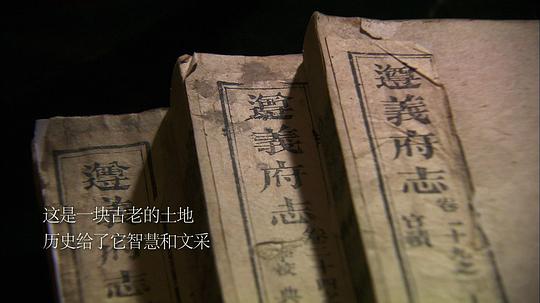 遵義府志
遵義府志
遵義府志
卷二十九之
官績
典
这是一块古老的土地
历史给了它智慧和文采